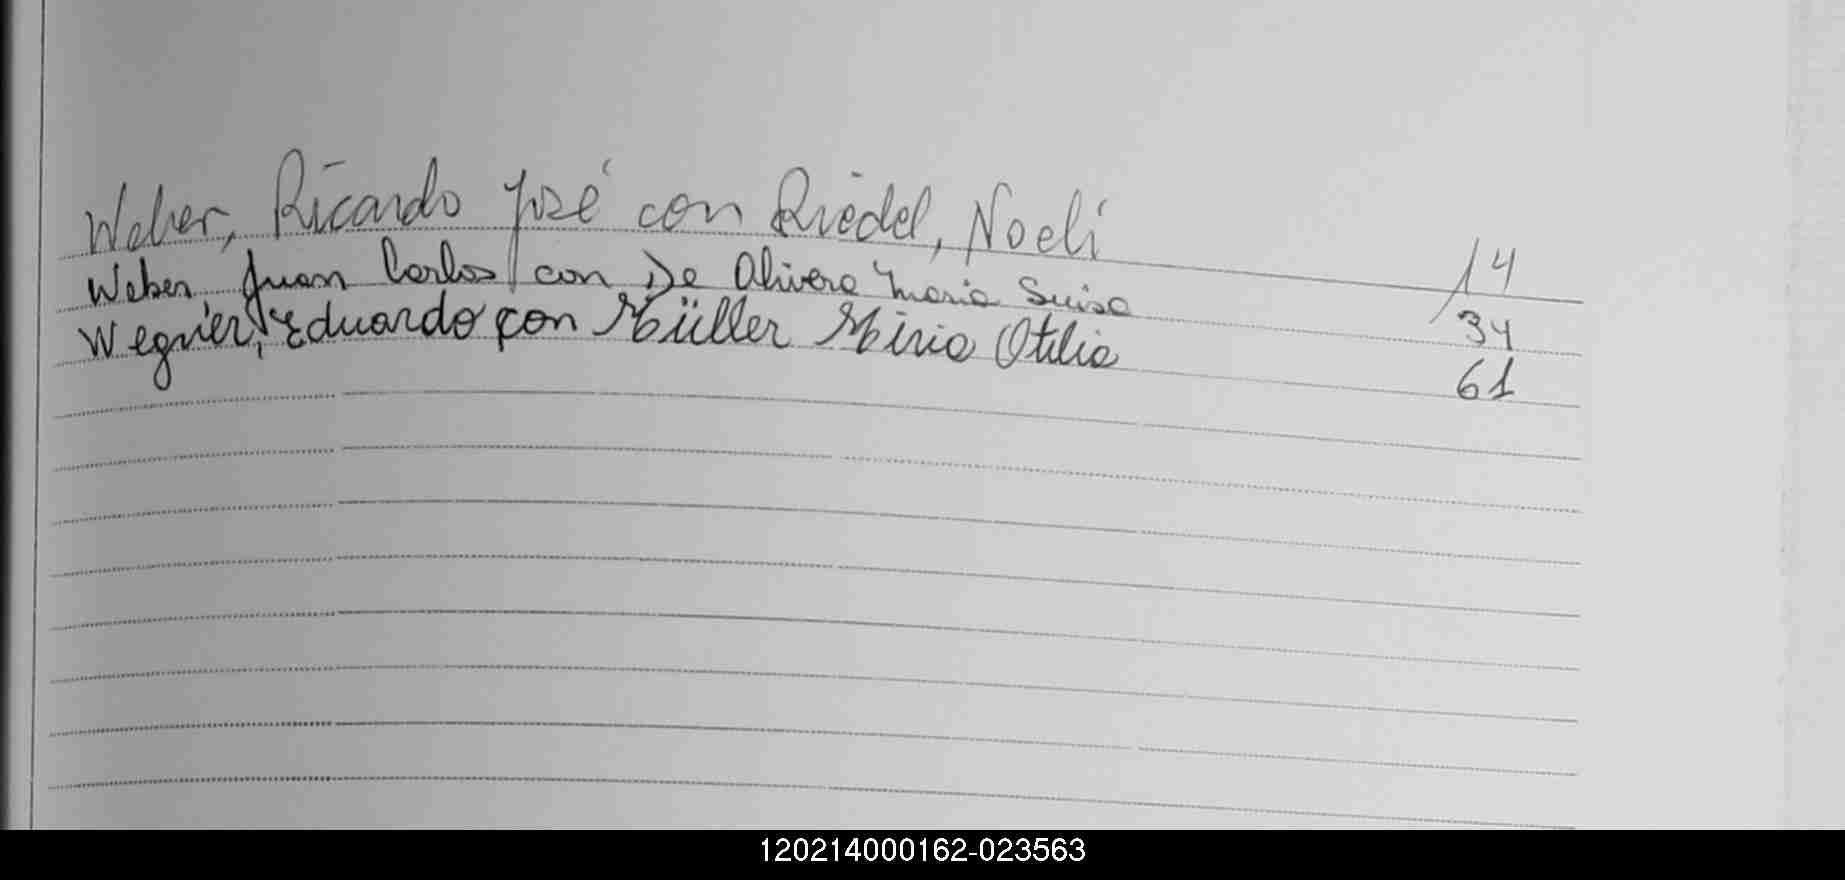 Weber, Ricardo José con Riedel, Noelí 14
Weber, Juan Carlos con De Olivera Maria Suisa 34
Wegnier, Eduardo con Müller Miria Otilia 61
120214000162-023563